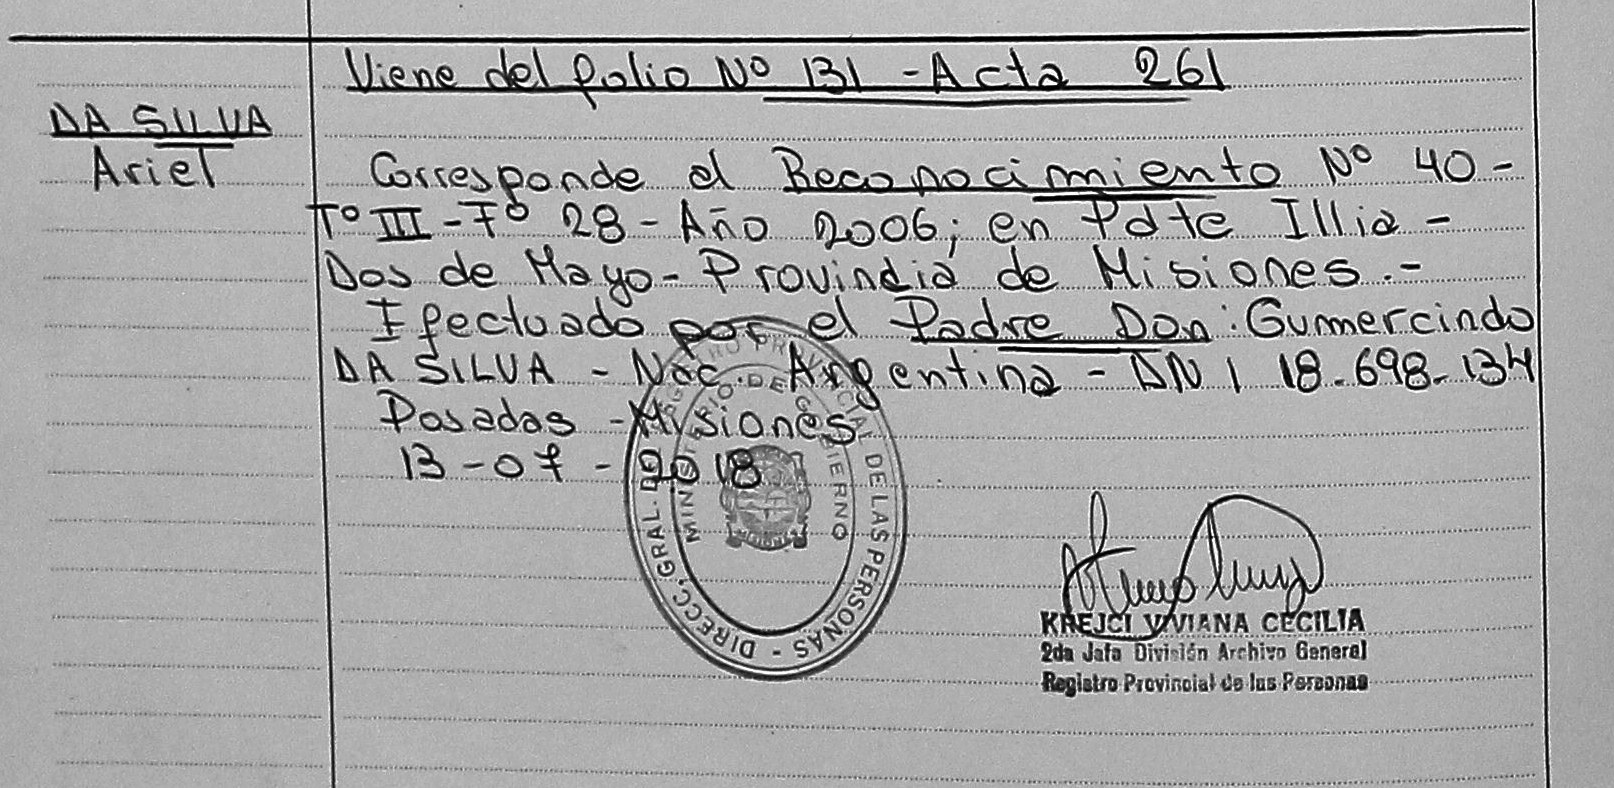 Viene del folio Nº 131 - Acta 261
DA SILVA
Ariel
Corresponde al Reconocimiento Nº 40 -
Tº III - Fº 28 - Año 2006; en Pdte Illia -
Dos de Mayo - Provindia de Misiones.-
Efectuado por el Padre Don: Gumercindo
DA SILVA - Nac. Argentina - DNI 18-698-134
Posadas - Misiones
13-07-2018
DIRECC. GRAL. DEL REGISTRO PROVINCIAL DE LAS PERSONAS -
MINISTERIO DE GOBIERNO
KREJCI VIVIANA CECILIA
2da Jefa División Archivo General
Registro Provincial de las Personas